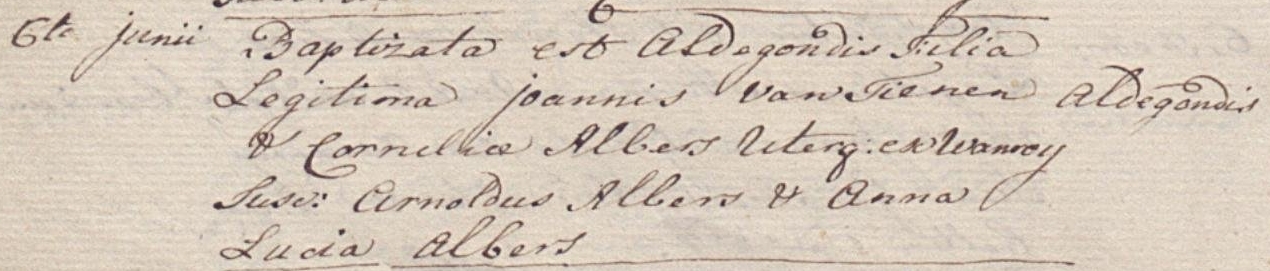 6te junii Baptizata est Aldegondis Filia
Legitima joannis van Tienen Aldegondis
& Corneliæ Albers Uterq: ex Wanroy
Susc: Arnoldus Albers & Anna
Lucia Albers